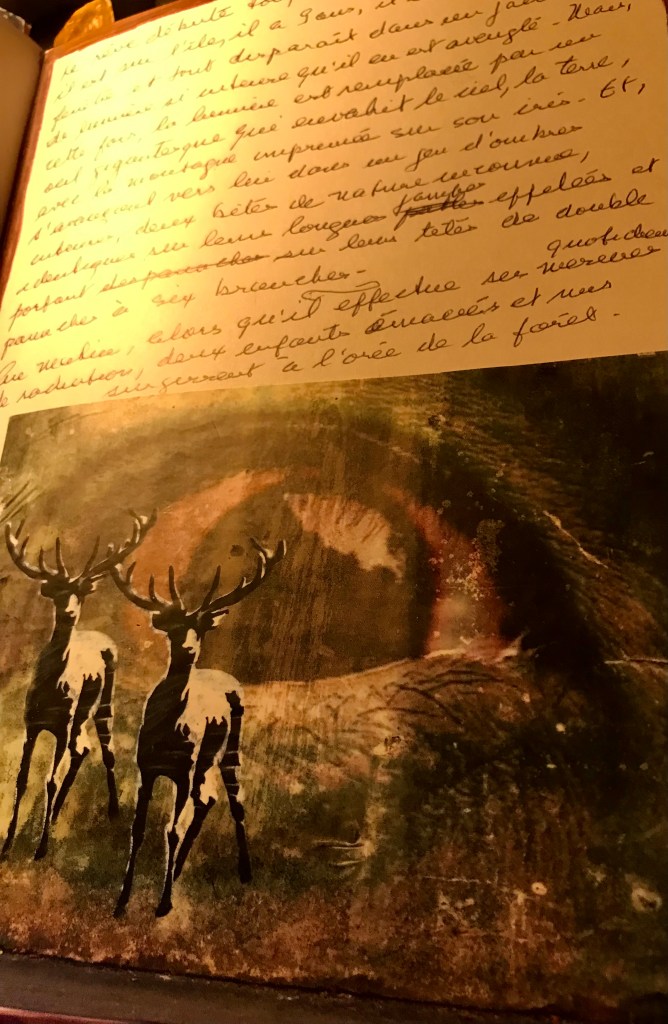 Le rêve débute
il est sur l'île, il a 9 ans, il
famille et tout disparaît dans un
de lumière si intense qu'il en est aveuglé. Mais,
cette fois, la lumière est remplacée par un
œil gigantesque qui envahit le ciel, la terre,
avec la montagne imprimée sur son iris. Et,
s'avançant vers lui dans un jeu d'ombres
intense, deux bêtes de nature inconnue,
identiques sur leurs longues jambes effilées et
portant sur leurs têtes de double
panaches à six branches.
quotidien
Au matin, alors qu'il effectue son mesurer
de radiation, deux enfants émaciés et nus
surgissent à l'orée de la forêt.